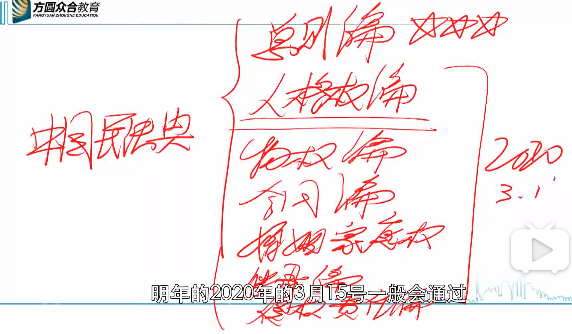 方圆众合教育
FANGYUAN ZHONGHE EDUCATION
中国民法典
总则编
人格权编
物权编
合同编
婚姻家庭
2020
3.1
明年的2020年的3月15号一般会通过